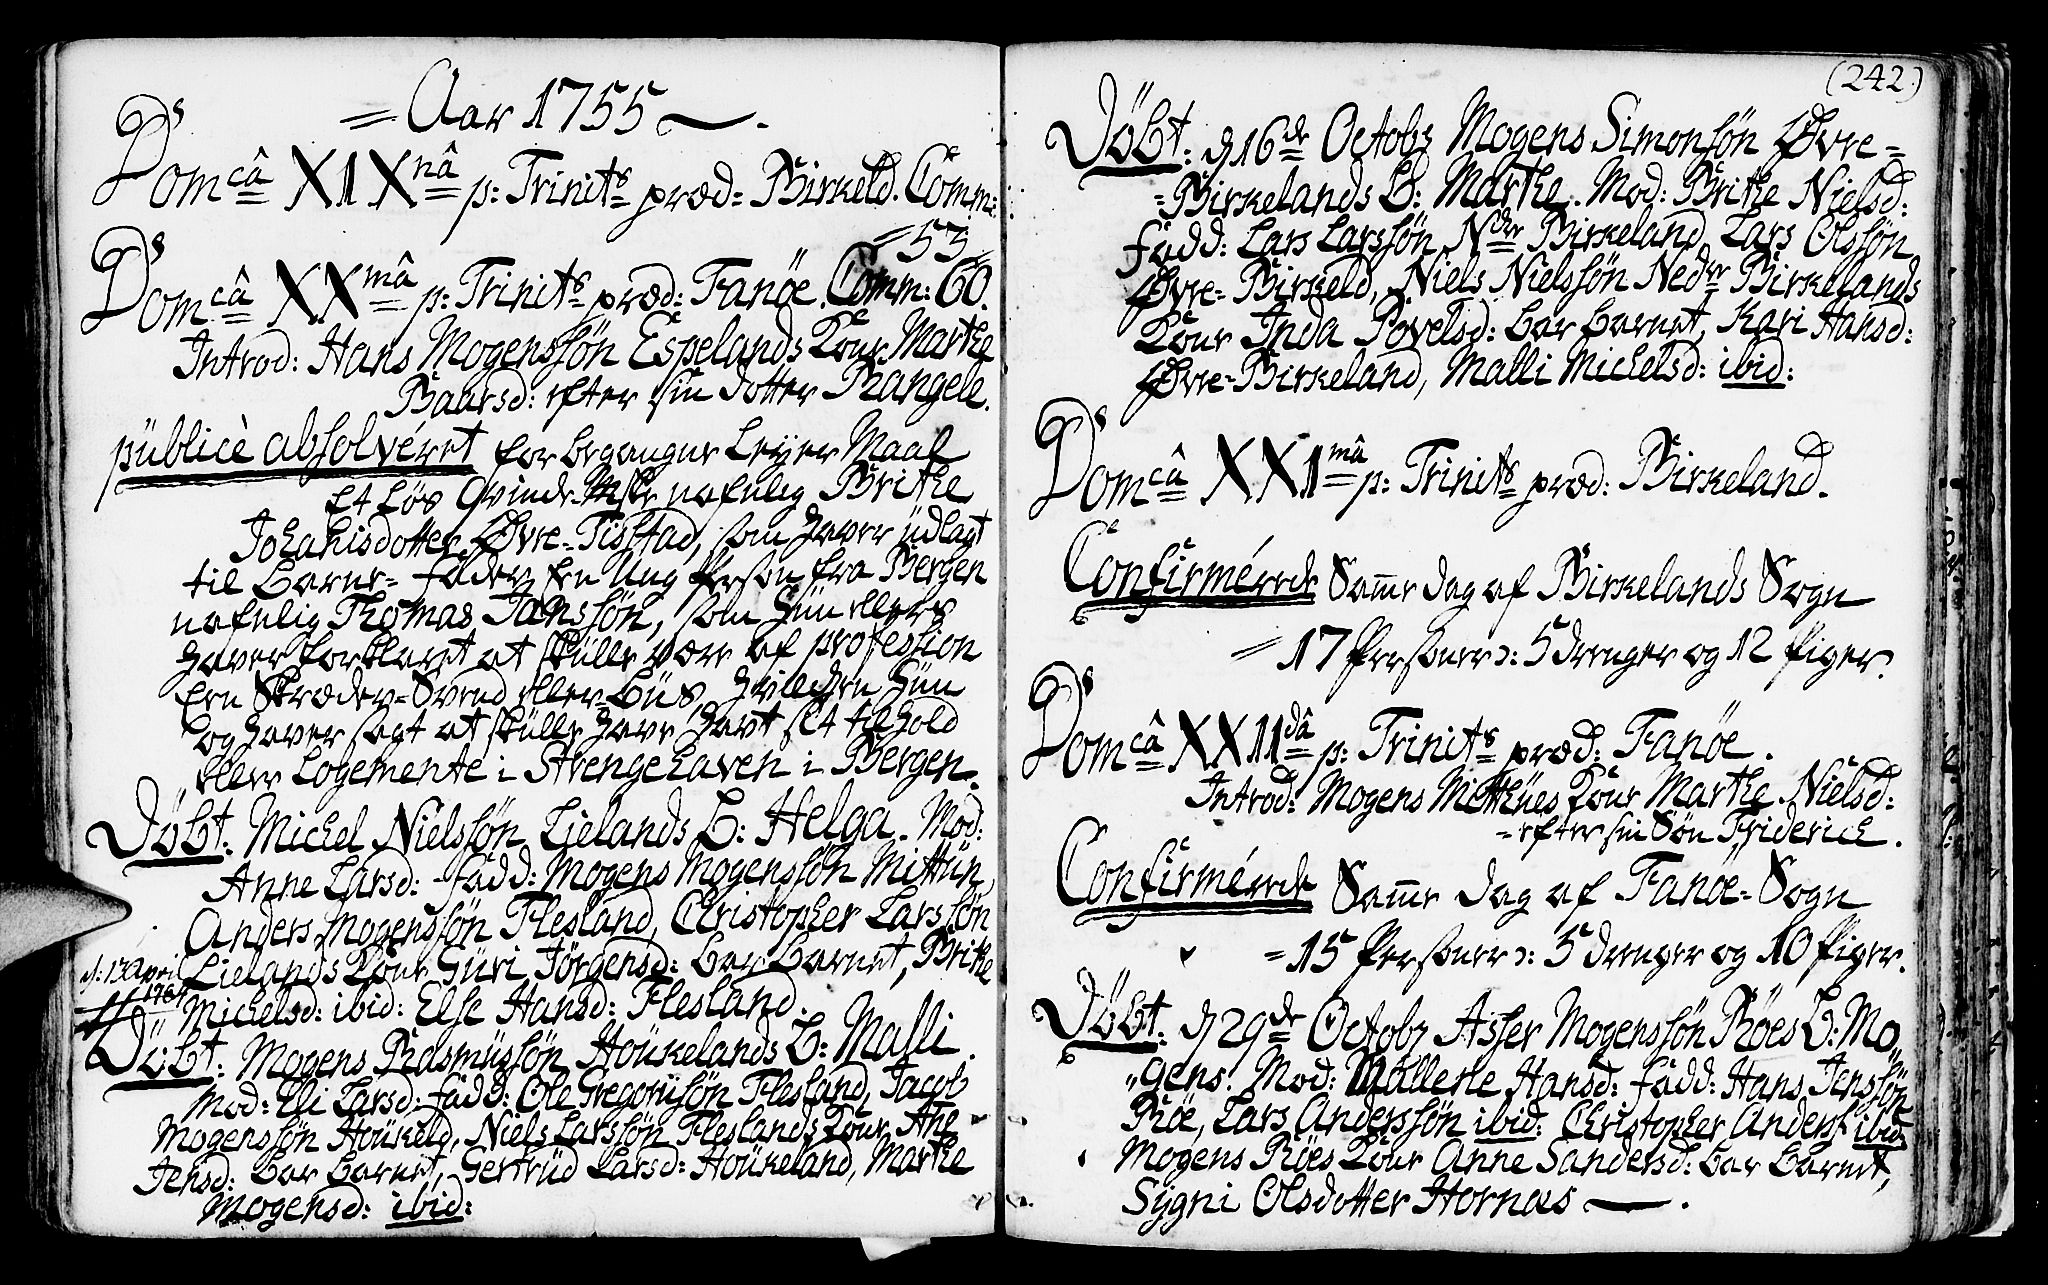 = Aar 1755 —.
Domcâ XIXnâ p: Trinits præd: Birkeld. Comm:
= 53
Domcâ XXmâ p: Trinits præd: Fanöe. Comm: 60.
Introd: Hans Mogenssön Espelands Kone Marthe
Baarsd: efter sin dotter Rangele.
püblicè absolvéret for begangne Leyer Maal
Et Løs Qvinde Mske nafnlig Brithe
Johanisdotter Øvre-Tistad, som haver üdlagt
til Barne-fader En Ung Person fra Bergen
nafnlig Thomas Jansson, som hün ellers
haver forklaret at skülle være af profession
Een Skræder-Svend eller-Büs, hvilchen hün
og haver sagt at skülle have havt sit tilhold
eller Logemente i Strengehaven i Bergen.
Döbt: Michel Nielssön Lielands B: Helga. Mod:
Anne Larsd: fadd: Mogens Mogenssön Mittün,
Anders Mogenssön Flesland, Christopher Larssön
Lielands Kone Güri Jörgensd: bar barnet, Brithe
d: 13 April
1764
Michelsd: ibid: Else Hansd: Flesland.
Döbt: Mogens Rasmüssön Hoükelands B: Malli.
Mod: Eli Larsd: fadd: Ole Gregorisön Flesland, Jacob
Mogenssön Hoükeld, Niels Larssön Fleslands Kone Ane
Jensd: bar barnet, Gertrüd Larsd: Hoükeland, Marthe
Mogensd: ibid:
(242)
Döbt: d 16de Octobr Mogens Simonsön Øvre-
=Birkelands B: Marthe. Mod: Brithe Nielsd:
fadd: Lars Larssön Ndre Birkeland, Lars Olssön
Øvre-Birkeld, Niels Nielssön Nedr Birkelands
Kone Inda Povelsd: bar barnet, Kari Hansd:
Øvre-Birkeland, Malli Michelsd: ibid:
Domcâ XXImâ p: Trinits præd: Birkeland.
Confirmérede Same dag af Birkelands Sogn
= 17 Personer ɔ: 5 drenger og 12 Piger.
Domcâ XXIIdâ p: Trinits præd: Fanöe.
Introd: Mogens Mitthües Kone Marthe Nielsd:
= efter sin Sön Friderich.
Confirmérede Same dag af Fanöe-Sogn
= 15 Personer ɔ: 5 drenger og 10 Piger.
Döbt: d 29de Octobr Asser Mogenssön Röes B: Mo
„gens. Mod: Mallene Hansd: fadd: Hans Jenssön
Röe, Lars Anderssön ibid: Christopher Anders: ibid:
Mogens Röes Kone Anne Sandersd: bar barnet,
Sygni Olsdotter Hornæs —.